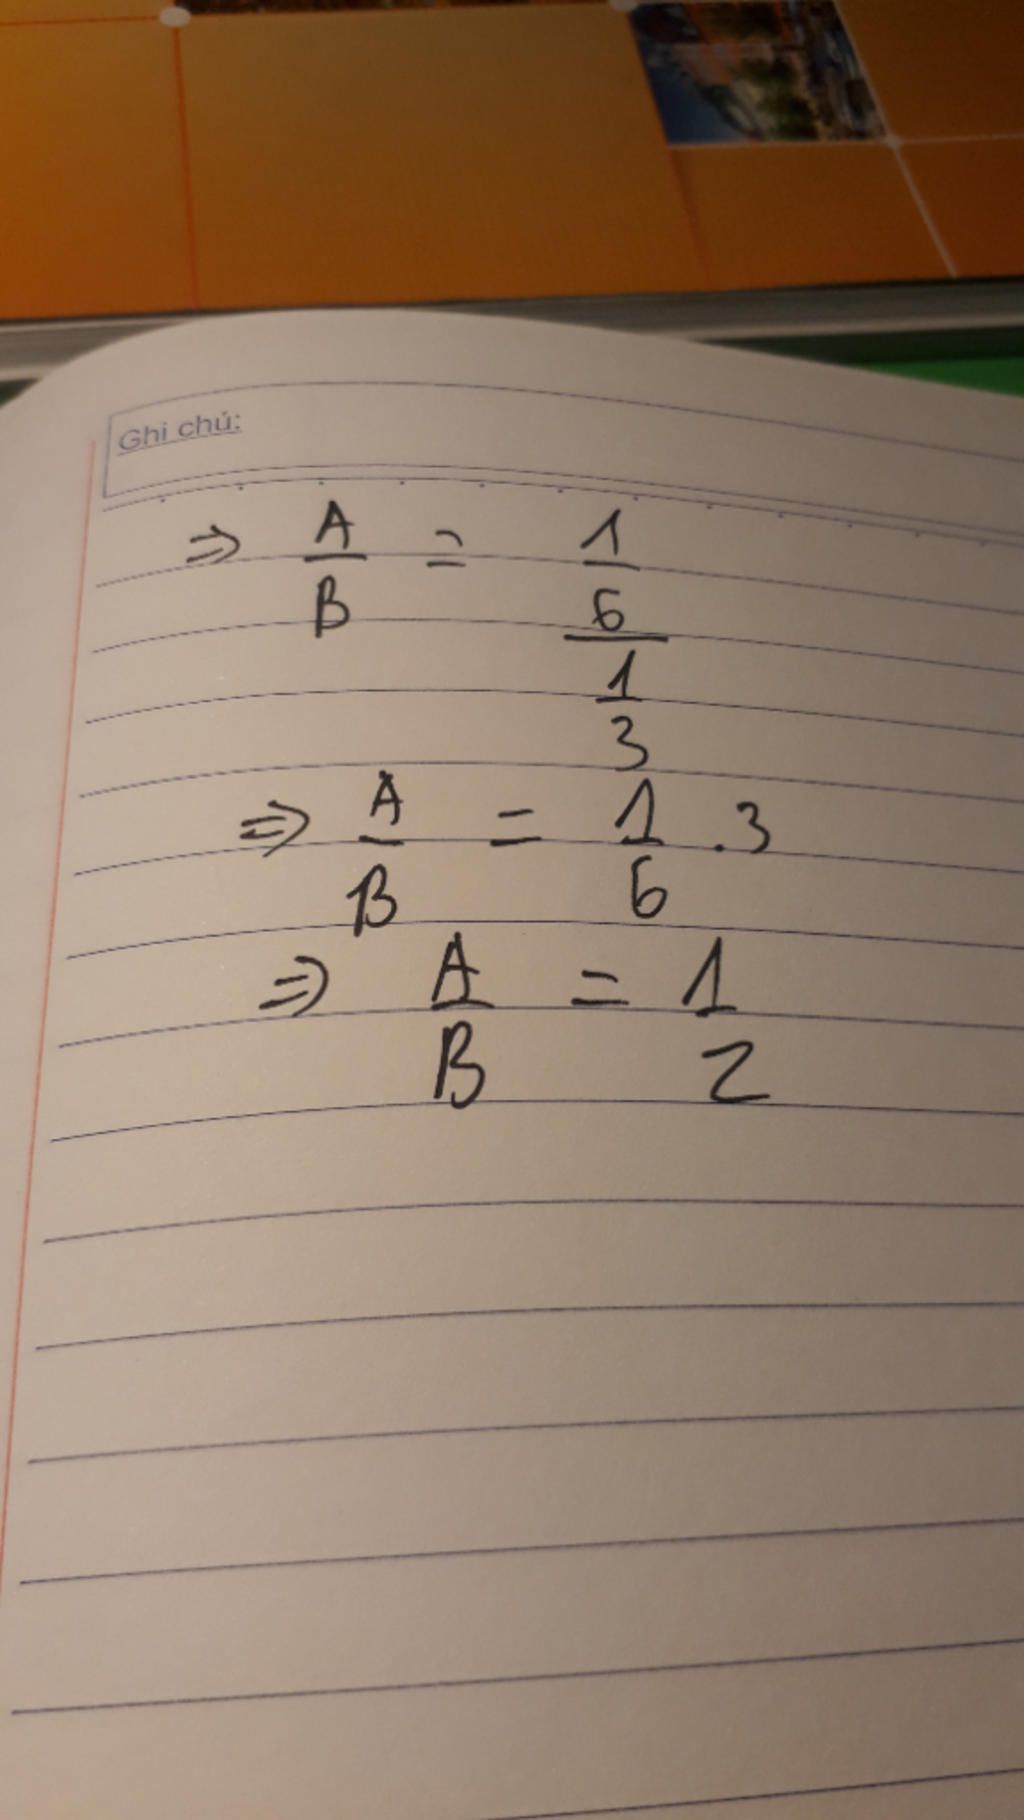 Ghi chú:
⇒ A/B = (1/6)/(1/3)
⇒ A/B = 1/6 . 3
⇒ A/B = 1/2